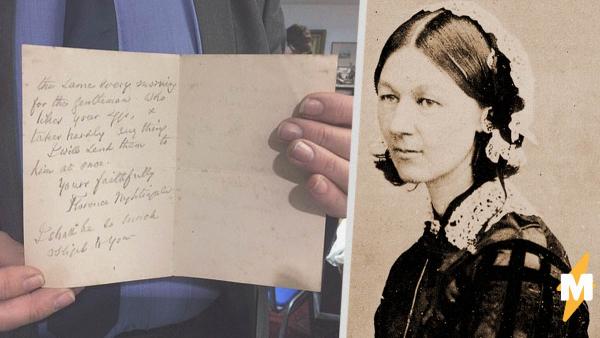 the same every morning
for the gentleman who
likes your eggs, &
takes hardly any thing
I will send them to
him at once.
Yours faithfully
Florence Nightingale
I shall be so much
obliged to you
M